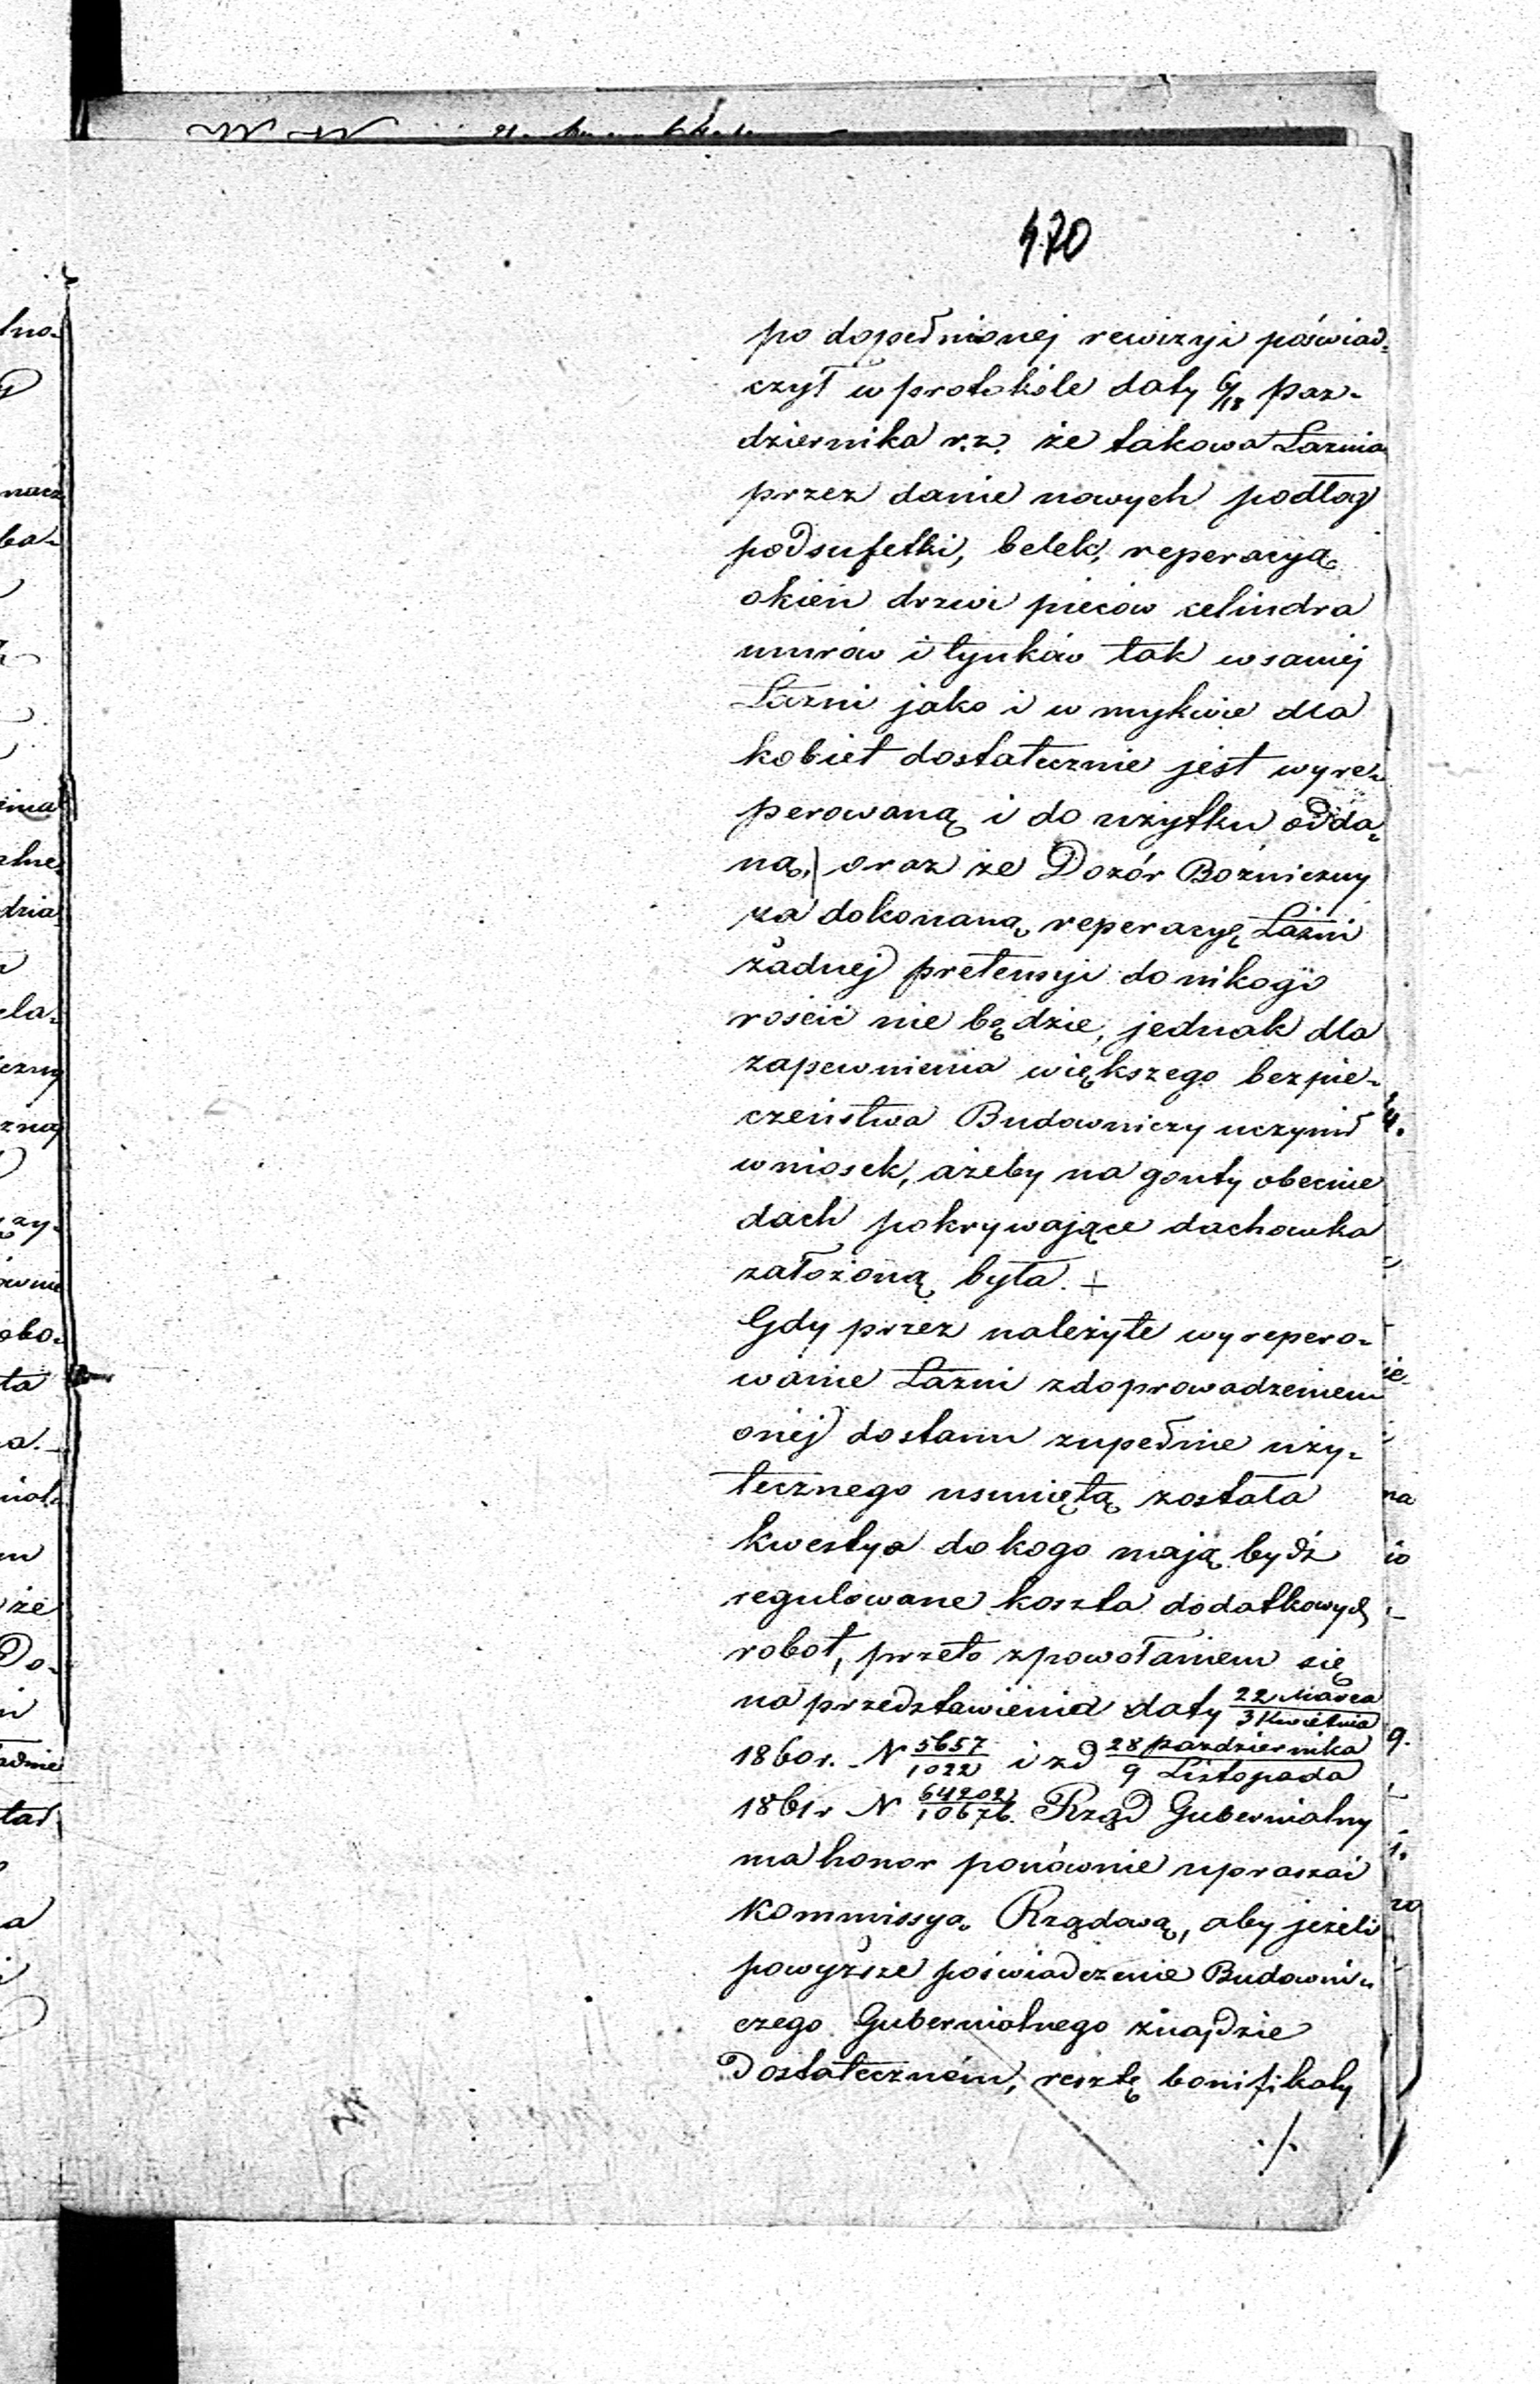 470
po dopełnionej rewizyi poświad-
czył w protokóle daty 6/18 paz-
dziernika r.z. że takowa Łaznia
przez danie nowych podłog
podsufetki, belek, reperacyą
okien drzwi pieców celindra
murów i tynków tak wsamej
Łazni jako i w mykwie dla
kobiet dostatecznie jest wyre-
perowaną i do użytku odda-
ną, oraz że Dozór Bożniczny
za dokonaną reperacyę Łazni
żadnej pretensyi do nikogo
rościć nie będzie, jednak dla
zapewnienia większego bezpie-
czeństwa Budowniczy uczynił
wniosek, ażeby na gonty obecnie
dach pokrywające dachowka
założoną była. +
Gdy przez należyte wyrepero-
wanie Łazni zdoprowadzeniem
onej dostanu zupełnie uży-
tecznego usuniętą została
kwestya do kogo mają bydź
regulowane koszta dodatkowych
robot, przeto zpowołaniem się
na przedstawienia daty 22 Marca/3 Kwietnia
1860 r. N 5657/1022 i zd 28 pazdziernika/9 Listopada
1861 r N 64202/10676. Rząd Gubernialny
ma honor ponównie upraszać
Kommissyą Rządową, aby jeżeli
powyższe poświadczenie Budowni-
czego Gubernialnego znajdzie
Dostatecznem, resztę bonifikaty
./.